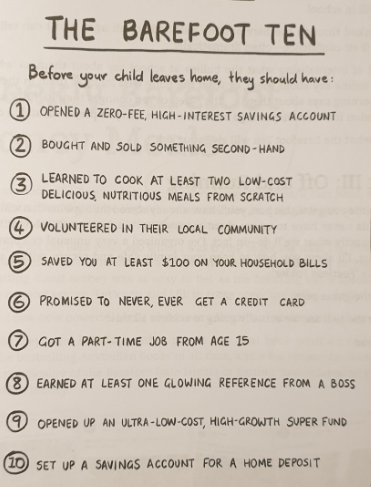 THE BAREFOOT TEN
Before your child leaves home, they should have:
1 OPENED A ZERO-FEE, HIGH-INTEREST SAVINGS ACCOUNT
2 BOUGHT AND SOLD SOMETHING SECOND-HAND
3 LEARNED TO COOK AT LEAST TWO LOW-COST
DELICIOUS, NUTRITIOUS MEALS FROM SCRATCH
4 VOLUNTEERED IN THEIR LOCAL COMMUNITY
5 SAVED YOU AT LEAST $100 ON YOUR HOUSEHOLD BILLS
6 PROMISED TO NEVER, EVER GET A CREDIT CARD
7 GOT A PART-TIME JOB FROM AGE 15
8 EARNED AT LEAST ONE GLOWING REFERENCE FROM A BOSS
9 OPENED UP AN ULTRA-LOW-COST, HIGH-GROWTH SUPER FUND
10 SET UP A SAVINGS ACCOUNT FOR A HOME DEPOSIT